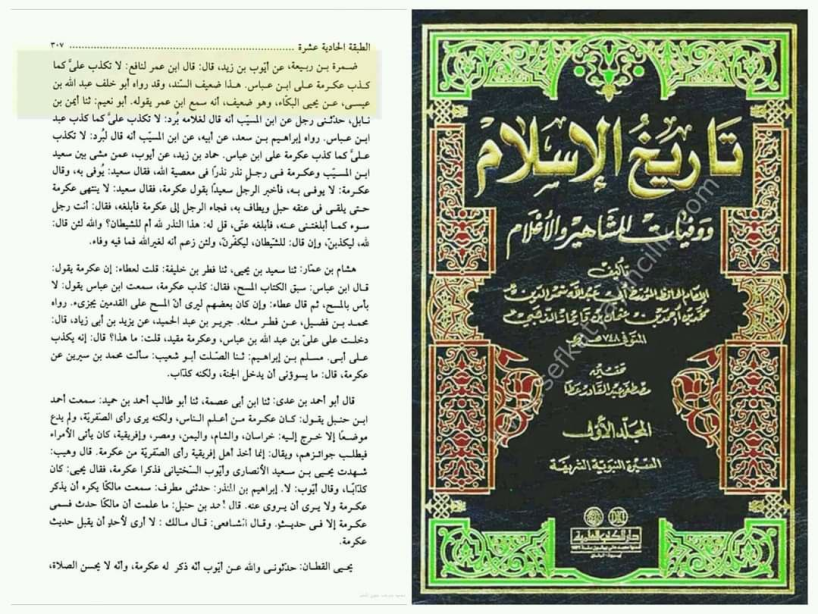 الطبقة الحادية عشرة ٣٠٧
ضمرة بن ربيعة، عن أيّوب بن زيد، قال: قال ابن عمر لنافع: لا تكذب عليَّ كما
كذب عكرمة على ابن عباس. هذا ضعيف السّند، وقد رواه أبو خلف عبد الله بن
عيسى، عن يحيى البكّاء، وهو ضعيف، أنه سمع ابن عمر يقوله. أبو نعيم: ثنا أيمن بن
نابل، حدّثني رجل عن ابن المسيّب أنه قال لغلامه بُرد: لا تكذب عليَّ كما كذب عبد
ابن عباس. رواه إبراهيم بن سعد، عن أبيه، عن ابن المسيّب أنه قال لبُرد: لا تكذب
عليَّ كما كذب عكرمة على ابن عباس. حماد بن زيد، عن أيوب، عمن مشى بين سعيد
ابن المسيّب وعكرمة في رجل نذر نذرًا في معصية الله، فقال سعيد: يُوفى به، وقال
عكرمة: لا يوفى به، فأخبر الرجل سعيدًا بقول عكرمة، فقال سعيد: لا ينتهي عكرمة
حتى يلقى في عنقه حبل ويطاف به، فجاء الرجل إلى عكرمة فأبلغه، فقال: أنت رجل
سوء كما أبلغتني عنه، فأبلغه عنّي، قل له: هذا النذر لله أم للشيطان؟ والله لئن قال:
لله، ليكذبنّ، وإن قال: للشّيطان، ليكفرنّ، ولئن زعم أنه لغير الله فما فيه وفاء.
هشام بن عمّار: ثنا سعيد بن يحيى، ثنا فطر بن خليفة: قلت لعطاء: إن عكرمة يقول:
قال ابن عباس: سبق الكتاب المسح، فقال: كذب عكرمة، سمعت ابن عباس يقول: لا
بأس بالمسح، ثم قال عطاء: وإن كان بعضهم ليرى أنّ المسح على القدمين يجزىء. رواه
محمد بن فضيل، عن فطر مثله. جرير بن عبد الحميد، عن يزيد بن أبي زياد، قال:
دخلت على عليّ بن عبد الله بن عباس، وعكرمة مقيد، قلت: ما هذا؟ قال: إنه يكذب
على أبي. مسلم بن إبراهيم: ثنا الصّلت أبو شعيب: سألت محمد بن سيرين عن
عكرمة، قال: ما يسوؤني أن يدخل الجنة، ولكنه كذّاب.
قال أبو أحمد بن عدى: ثنا ابن أبي عصمة، ثنا أبو طالب أحمد بن حميد: سمعت أحمد
ابن حنبل يقول: كان عكرمة من أعلم الناس، ولكنه يرى رأى الصّفريّة، ولم يدع
موضعًا إلا خرج إليه: خراسان، والشام، واليمن، ومصر، وإفريقية، كان يأتى الأمراء
فيطلب جوائزهم، ويقال: إنما أخذ أهل إفريقية رأى الصّفريّة من عكرمة. قال وهيب:
شهدت يحيى بن سعيد الأنصارى وأيّوب السّختيانى فذكرا عكرمة، فقال يحيى: كان
كذّابًا، وقال أيّوب: لا. إبراهيم بن المنذر: حدثنى مطرف: سمعت مالكًا يكره أن يذكر
عكرمة ولا يرى أن يروى عنه. قال أحمد بن حنبل: ما علمت أن مالكًا حدث فسمى
عكرمة إلا فى حديث. وقال الشافعى: قال مالك: لا أرى لأحدٍ أن يقبل حديث
عكرمة.
يحيى القطان: حدثونى والله عن أيّوب أنّه ذكر له عكرمة، وأنّه لا يحسن الصلاة،
تاريخ الإسلام
ووفيات المشاهير والأعلام
تأليف
الإمام الحافظ المؤرخ أبي عبد الله شمس الدين
محمد بن أحمد بن عثمان بن قايماز الذهبي
المتوفى ٧٤٨ هـ
تحقيق
مصطفى عبد القادر عطا
المجلد الأول
السيرة النبوية الشريفة
دار الكتب العلمية